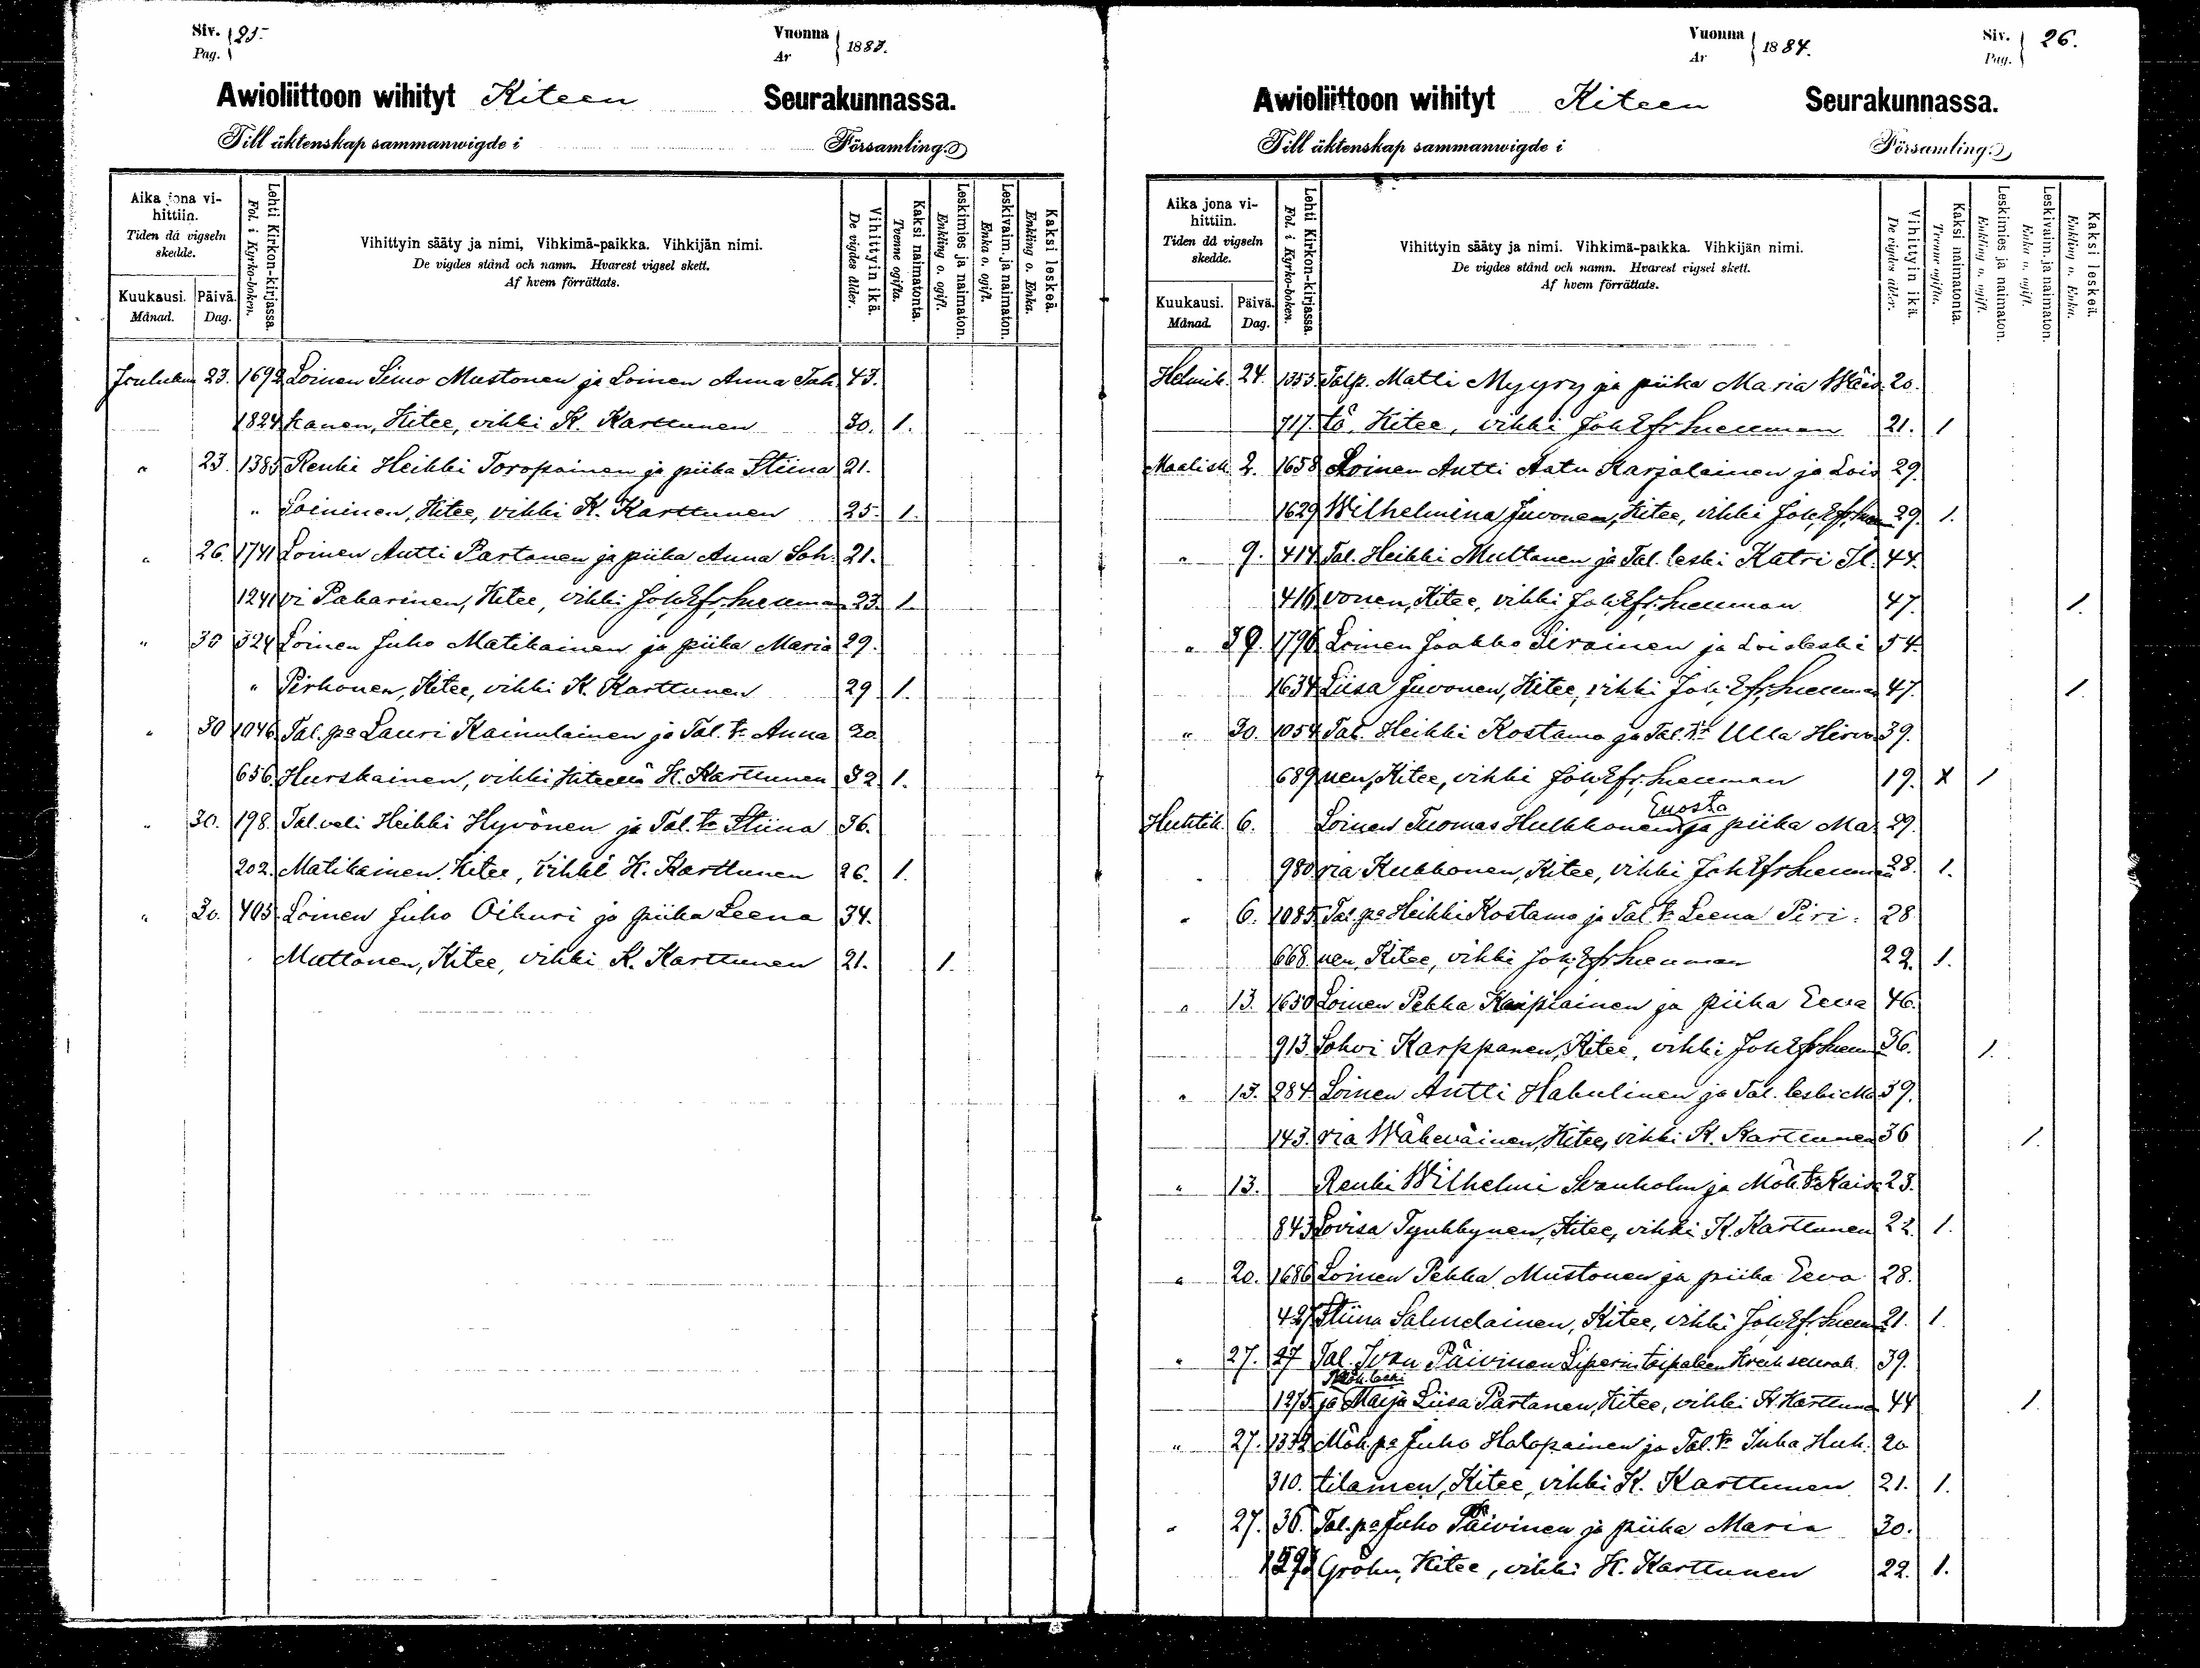 Siv. Pag. 25
Vuonna Ar 1883.
Awioliittoon wihityt Kiteen Seurakunnassa.
Till äktenskap sammanwigde i Församling.
Aika jona vihittiin. Tiden då vigseln skedde.
Kuukausi. Månad.
Päivä. Dag.
Lehti Kirkon-kirjassa. Fol. i Kyrko-boken.
Vihittyin sääty ja nimi, Vihkimä-paikka. Vihkijän nimi.
De vigdes stånd och namn. Hvarest vigsel skett.
Af hvem förrättats.
Vihittyin ikä. De vigdes ålder.
Kaksi naimatonta. Tvenne ogifta.
Leskimies ja naimaton. Enkling o. ogift.
Leskivaim. ja naimaton. Enka o. ogift.
Kaksi leskeä. Enkling o. Enka.
Jouluku 23. 1692 Loinen Simo Mustonen ja Loinen Anna Tah. 43.
1824 kanen, Kitee, vihki K. Karttunen 30. 1.
" 23. 1385 Renki Heikki Toropainen ja piika Stiina 21.
" Soininen, Kitee, vihki K. Karttunen 25. 1.
" 26. 1741 Loinen Antti Partanen ja piika Anna Soh. 21.
1241 vi Pakarinen, Kitee, vihki Joh. Efr. Sneuman 23. 1.
" 30 324 Loinen Juho Matikainen ja piika Maria 29.
" Pirhonen, Kitee, vihki K. Karttunen 29 1.
" 30 1046 Tal. pa Lauri Kainulainen ja Tal. tr. Anna 20.
656. Hurskainen, vihki Kiteellä K. Karttunen 32 1.
" 30. 198. Tal. veli Heikki Hyvönen ja Tal. tr Stiina 36.
202. Matikainen. Kitee, vihki K. Karttunen 26. 1.
" 30. 405. Loinen Juho Oihuri ja piika Leena 34.
Muttonen, Kitee, vihki K. Karttunen 21. 1.
Vuonna Ar 1884.
Siv. Pag. 26.
Awioliittoon wihityt Kiteen Seurakunnassa.
Till äktenskap sammanwigde i Församling.
Aika jona vihittiin. Tiden då vigseln skedde.
Kuukausi. Månad.
Päivä. Dag.
Lehti Kirkon-kirjassa. Fol. i Kyrko-boken.
Vihittyin sääty ja nimi. Vihkimä-paikka. Vihkijän nimi.
De vigdes stånd och namn. Hvarest vigsel skett.
Af hvem förrättats.
Vihittyin ikä. De vigdes ålder.
Kaksi naimatonta. Tvenne ogifta.
Leskimies ja naimaton. Enkling o. ogift.
Leskivaim. ja naimaton. Enka o. ogift.
Kaksi leskeä. Enkling o. Enka.
Helmik. 24. 1355. Talp. Matti Myyry ja piika Maria Wäis 20.
717. tö. Kitee, vihki Joh Efr Sneuman 21. 1
Maalisk. 2. 1658 Loinen Antti Aatu Karjalainen ja Lois 29.
1629 Wilhelmina Juvonen, Kitee, vihki Joh. Efr. 29. 1.
" 9. 414 Tal. Heikki Multanen ja Tal. leski Katri Il. 44.
416 vonen, Kitee, vihki Joh. Efr. Sneuman 47. 1.
" 1796 Loinen Jaakko Sirainen ja Lois leski 54.
1634 Liisa Juvonen, Kitee, vihki Joh. Efr. Sneuman 47. 1.
" 30. 1054 Tal. Heikki Kostamo ja Tal. tr Ulla Hirvo. 39.
689 nen, Kitee, vihki Joh. Efr. Sneuman 19. X 1
Enosta
Huhtik. 6. Loinen Tuomas Hulkkonen ja piika Ma. 29.
980 ria Kukkonen, Kitee, vihki Joh Efr Sneuman 28. 1.
" 6. 1085 Tal. pa Heikki Kostamo ja Tal. tr Leena Piri. 28
668 nen, Kitee, vihki Joh. Efr Sneuman 22. 1.
" 13. 1650 Loinen Pekka Kaipiainen ja piika Eeva 46.
913 Sohvi Karppanen, Kitee, vihki Joh Efr Sneum 36. 1.
" 13. 284. Loinen Antti Hakulinen ja Tal. leski Ma 39.
143. ria Wäkeväinen, Kitee, vihki K. Karttunen 36 1.
" 13. Renki Wilhelmi Svanholm ja Mök. tr Kaisa 23.
843 Lovisa Tynkkynen, Kitee, vihki K. Karttunen 22. 1.
" 20. 1686 Loinen Pekka Mustonen ja piika Eeva 28.
427 Stiina Salmelainen, Kitee, vihki Joh. Efr. Sneum 21. 1.
" 27. 27 Tal. Ivan Päivinen Liperin taipaleen kreik seurak. 39.
Mök. leski
1275 ja Maija Liisa Partanen, Kitee, vihki K. Karttunen 44 1.
" 27. 1332 Mök. pa Juho Halopainen ja Tal. tr Inka Huh. 20
310. tilainen, Kitee, vihki K. Karttunen 21. 1.
" 27. 36. Tal. pa Juho Päivinen ja piika Maria 30.
Gröhn, Kitee, vihki K. Karttunen 22. 1.